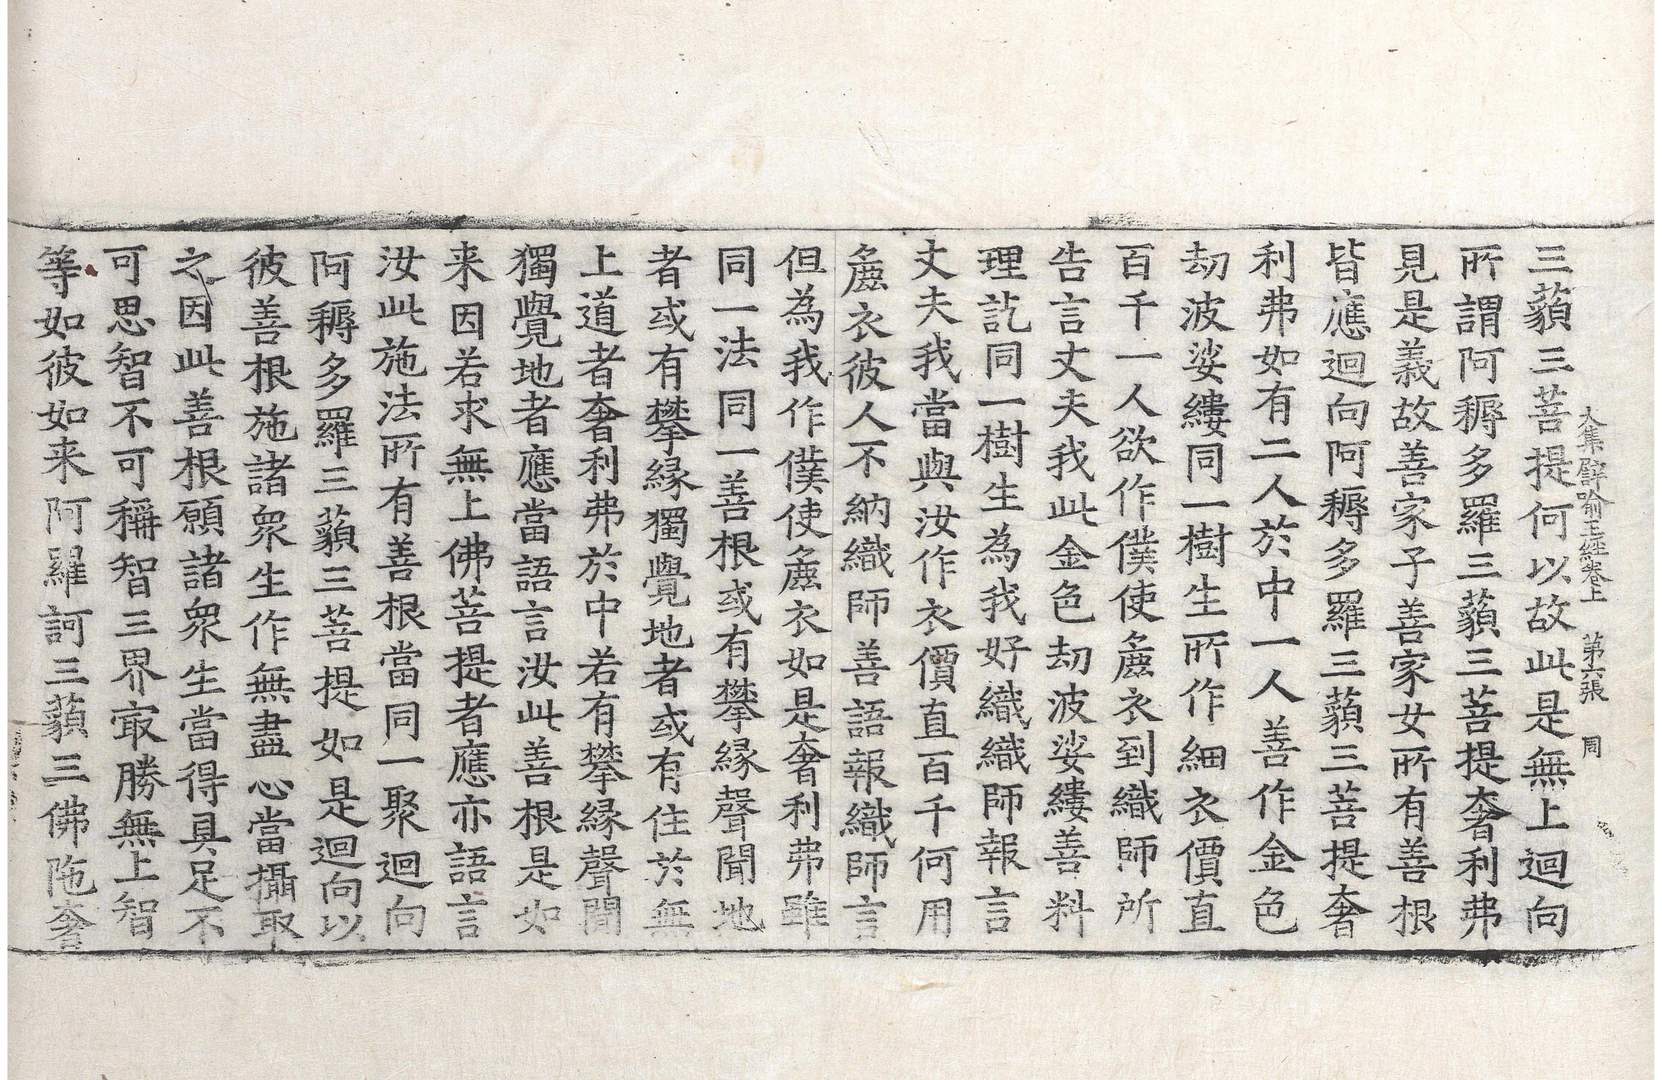 大集譬喻王經卷上 第六張 周
三藐三菩提何以故此是無上迴向
所謂阿耨多羅三藐三菩提奢利弗
見是義故善家子善家女所有善根
皆應迴向阿耨多羅三藐三菩提奢
利弗如有二人於中一人善作金色
劫波娑縷同一樹生所作細衣價直
百千一人欲作僕使麁衣到織師所
告言丈夫我此金色劫波娑縷善料
理訖同一樹生為我好織織師報言
丈夫我當與汝作衣價直百千何用
麁衣彼人不納織師善語報織師言
但為我作僕使麁衣如是奢利弗雖
同一法同一善根或有攀緣聲聞地
者或有攀緣獨覺地者或有住於無
上道者奢利弗於中若有攀緣聲聞
獨覺地者應當語言汝此善根是如
来因若求無上佛菩提者應亦語言
汝此施法所有善根當同一聚迴向
阿耨多羅三藐三菩提如是迴向以
彼善根施諸衆生作無盡心當攝取
之因此善根願諸衆生當得具足不
可思智不可稱智三界㝡勝無上智
等如彼如来阿羅訶三藐三佛陁奢